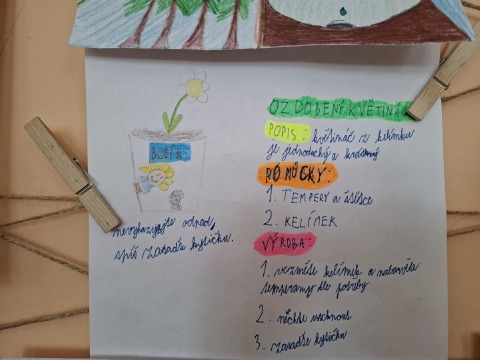 nevyhazujte odpad,
spíš zasaďte kytičku.
OZDOBENÝ KVĚTINÁČ
POPIS: květináč z kelímku
je jednoduchý a krásný
POMŮCKY:
1. TEMPERY a štětce
2. KELÍMEK
VÝROBA:
1. vezměte kelímek a nabarvěte
temperamy dle potřeby
2. nechte uschnout
3. zasaďte kytičku